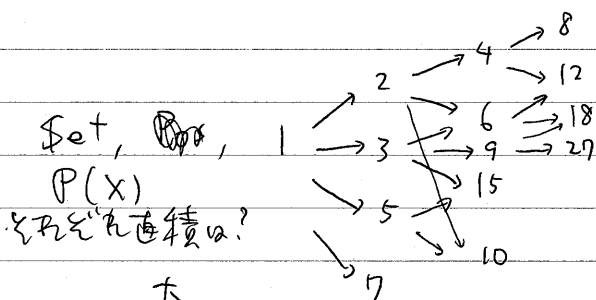 Set, ,
P(X)
それぞれ直積は?
1
2 3 5 7
4 6 9 15 10
8 12 18 27